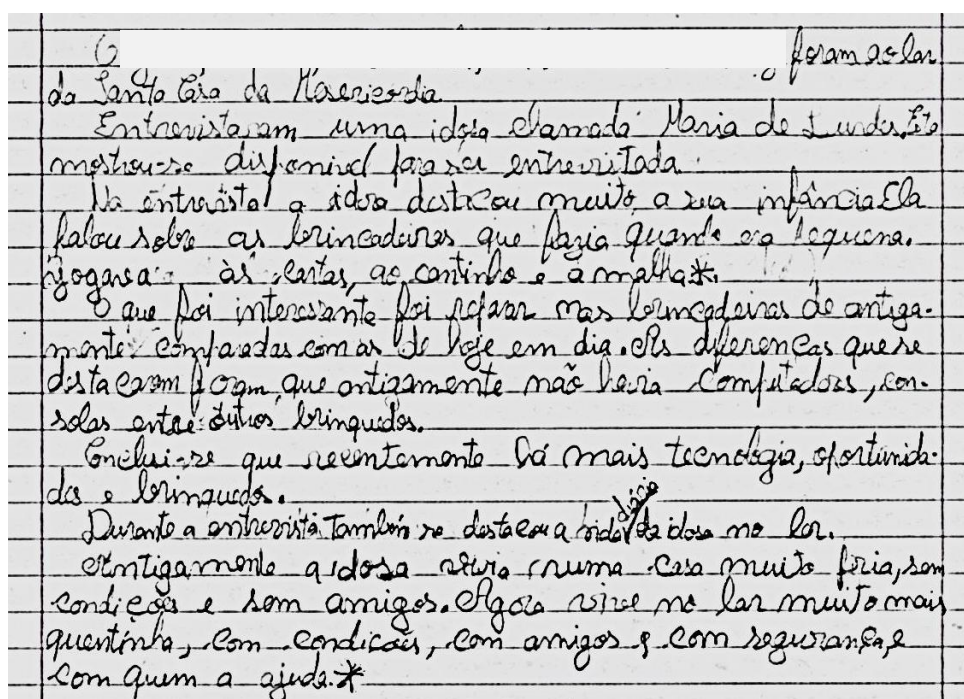 O foram ao lar
da Santa Casa da Misericordia
Entrevistaram uma idosa chamada Maria de Lurdes. Ela
mostrou-se disponivel para ser entrevistada.
Na entrevista a idosa destacou muito, a sua infância Ela
falou sobre as brincadeiras que fazia quando era pequena.
Jogava às cartas, ao cantinho e à malha*.
O que foi interessante foi reparar nas brincadeiras de antiga-
mente comparadas com as de hoje em dia. As diferenças que se
destacaram foram, que antigamente não havia computadores, con-
solas entre outros brinquedos.
Conclui-se que recentemente há mais tecnologia, oportunida-
des e brinquedos.
Durante a entrevista também se destacou a vida diária da idosa no lar.
Antigamente a idosa vivia numa casa muito fria, sem
condições e sem amigos. Agora vive no lar muito mais
quentinha, com condições, com amigos e com segurança, e
com quem a ajuda.*